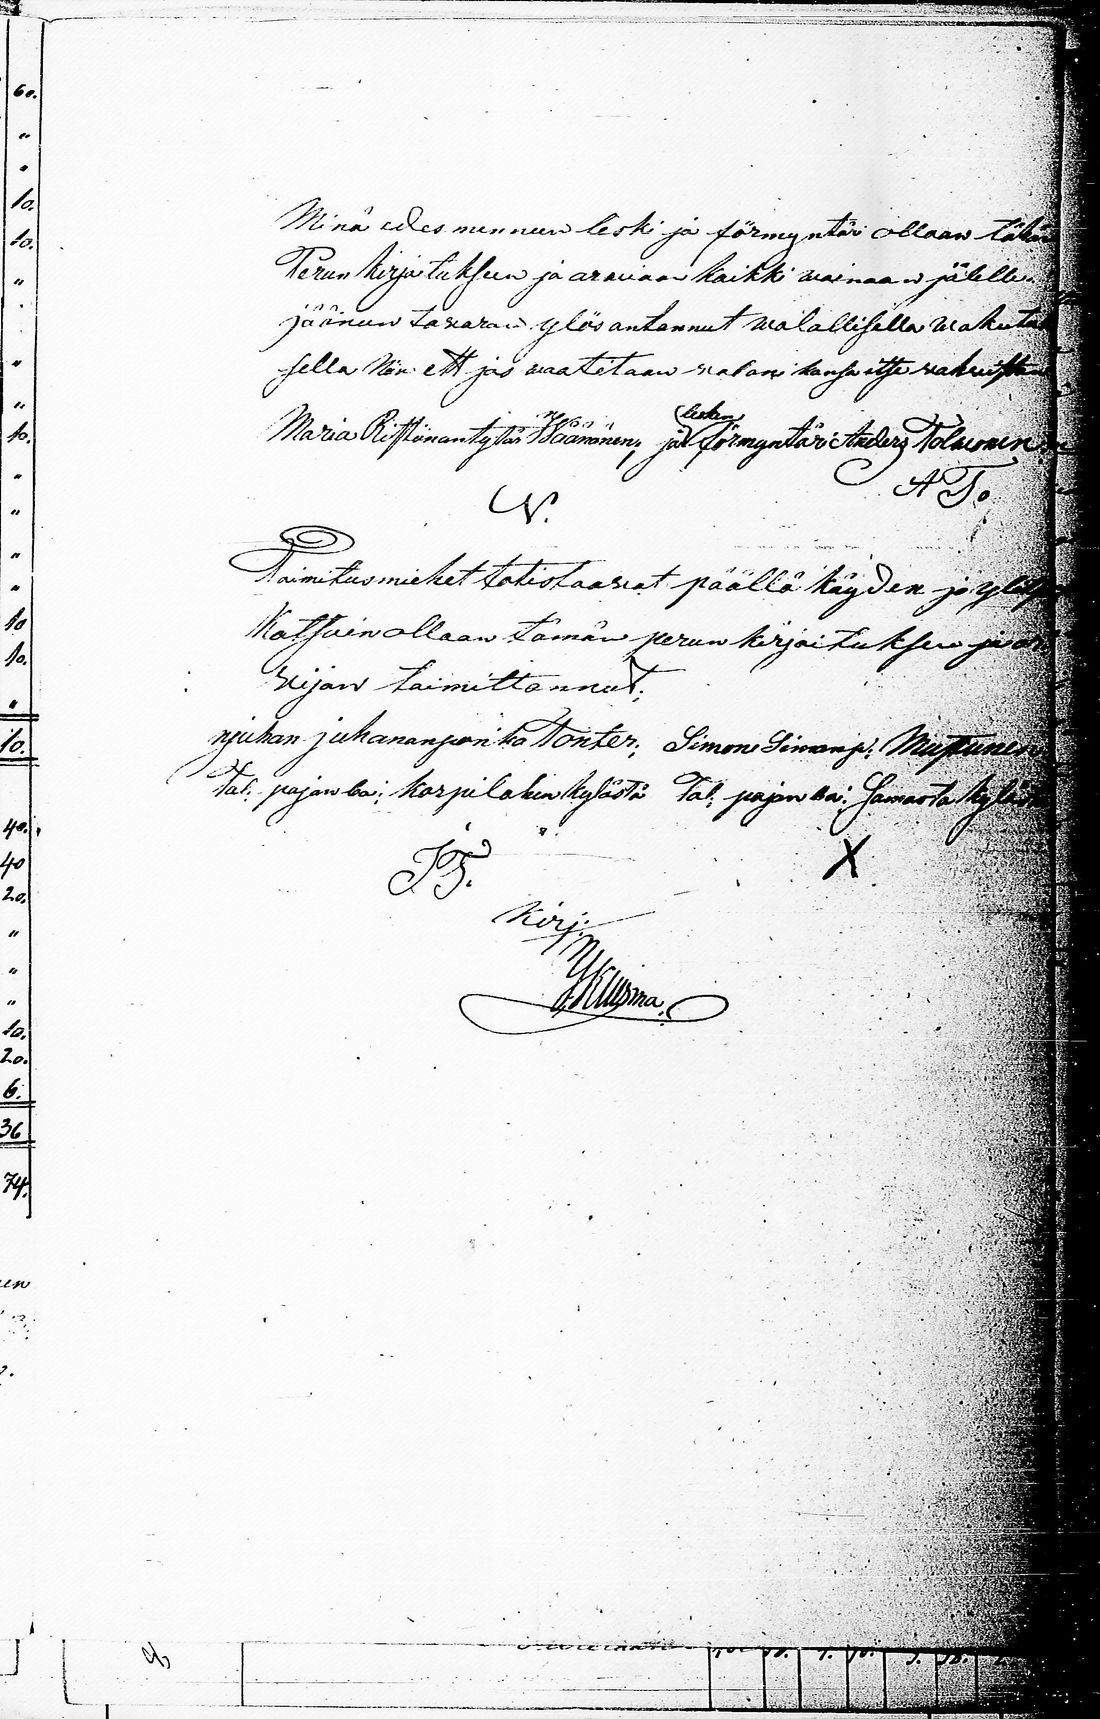 60.
"
"
10.
10.
"
"
"
10.
"
"
"
"
10
10.
"
10.
40.
40
20.
"
"
"
10.
20.
6.
36
74.
en
Minä edes mennen leski ja förmyntäri ollaan tähän
Perun kirjatuksen ja arawan kaikki wainaan jälelle
jäänen tawaran ylös antannut walallisella wakuta
sella Nön ett jos waatitaan walan kansa itse wahwistan
Maria Ristonantytär Wäänönen; ja lesken förmyntäri Anders Tolwonen
N. A T.
Toimitusmiehet totistaawat päällä käyden ja ylös
Katsoin ollaan tämän perun kirjoituksen ja ar
wijan toimittannut;
njuhan juhananpoika Tonter; Simon Simonp: Mustunen
Tal: pojan ba: korpilahen kylästä Tal: pojan ba: Samasta kyläst
J T. X
Kirj.
Y Kuosma.